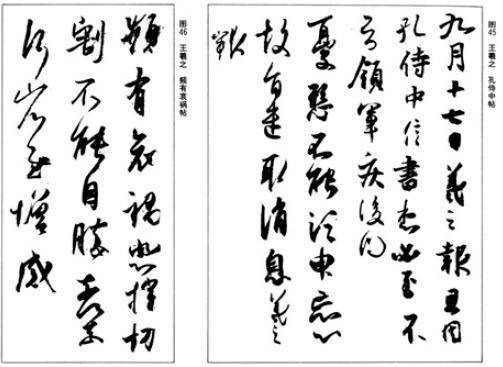 图45 王羲之 孔侍中帖
九月十七日羲之報且因
孔侍中信書想必至不
知領軍疾後問
憂懸不能須臾忘心
故旨遣取消息羲之
報
图46 王羲之 频有哀祸帖
頻有哀禍悲摧切
割不能自勝奈
何省慰增感